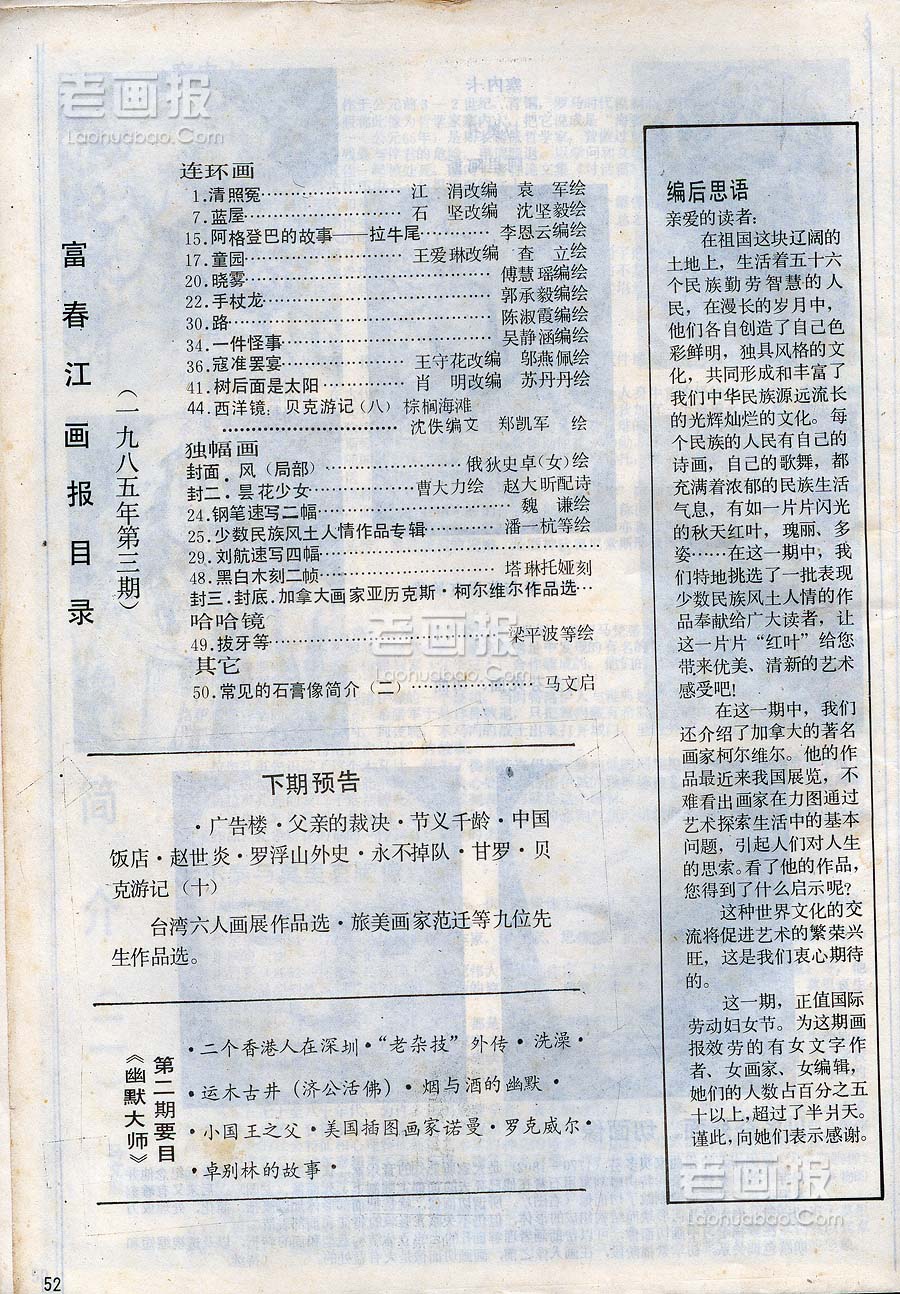 老画报
Laohuabao.Com
富春江画报目录
（一九八五年第三期）
连环画
1.清照冤……………………江　涓改编　袁　军绘
7.蓝屋………………………石　坚改编　沈坚毅绘
15.阿格登巴的故事——拉牛尾…………李恩云编绘
17.童园………………………王爱琳改编　查　立绘
20.晓雾……………………………………傅慧瑶编绘
22.手杖龙…………………………………郭承毅编绘
30.路………………………………………陈淑霞编绘
34.一件怪事………………………………吴静涵编绘
36.寇准罢宴…………………王守花改编　邬燕佩绘
41.树后面是太阳……………肖　明改编　苏丹丹绘
44.西洋镜：贝克游记（八）棕榈海滩
……………………………沈佚编文　郑凯军　绘
独幅画
封面．风（局部）……………………俄狄史卓(女)绘
封二．昙花少女………………曹大力绘　赵大昕配诗
24.钢笔速写二幅…………………………魏　谦绘
25.少数民族风土人情作品专辑…………潘一杭等绘
29.刘航速写四幅……………………………………
48.黑白木刻二帧…………………………塔琳托娅刻
封三．封底．加拿大画家亚历克斯·柯尔维尔作品选…
哈哈镜
49.拔牙等…………………………………梁平波等绘
其它
50.常见的石膏像简介（二）………………马文启
老画报
Laohuabao.Com
下期预告
·广告楼·父亲的裁决·节义千龄·中国
饭店·赵世炎·罗浮山外史·永不掉队·甘罗·贝
克游记（十）
台湾六人画展作品选·旅美画家范迁等九位先
生作品选。
第二期要目
《幽默大师》
·二个香港人在深圳·“老杂技”外传·洗澡·
·运木古井（济公活佛）·烟与酒的幽默·
·小国王之父·美国插图画家诺曼·罗克威尔·
·卓别林的故事·
编后思语
亲爱的读者：
在祖国这块辽阔的
土地上，生活着五十六
个民族勤劳智慧的人
民，在漫长的岁月中，
他们各自创造了自己色
彩鲜明，独具风格的文
化，共同形成和丰富了
我们中华民族源远流长
的光辉灿烂的文化。每
个民族的人民有自己的
诗画，自己的歌舞，都
充满着浓郁的民族生活
气息，有如一片片闪光
的秋天红叶，瑰丽、多
姿……在这一期中，我
们特地挑选了一批表现
少数民族风土人情的作
品奉献给广大读者，让
这一片片“红叶”给您
带来优美、清新的艺术
感受吧！
在这一期中，我们
还介绍了加拿大的著名
画家柯尔维尔。他的作
品最近来我国展览，不
难看出画家在力图通过
艺术探索生活中的基本
问题，引起人们对人生
的思索。看了他的作品，
您得到了什么启示呢？
这种世界文化的交
流将促进艺术的繁荣兴
旺，这是我们衷心期待
的。
这一期，正值国际
劳动妇女节。为这期画
报效劳的有女文字作
者、女画家、女编辑，
她们的人数占百分之五
十以上，超过了半爿天。
谨此，向她们表示感谢。
老画报
Laohuabao.Com
52